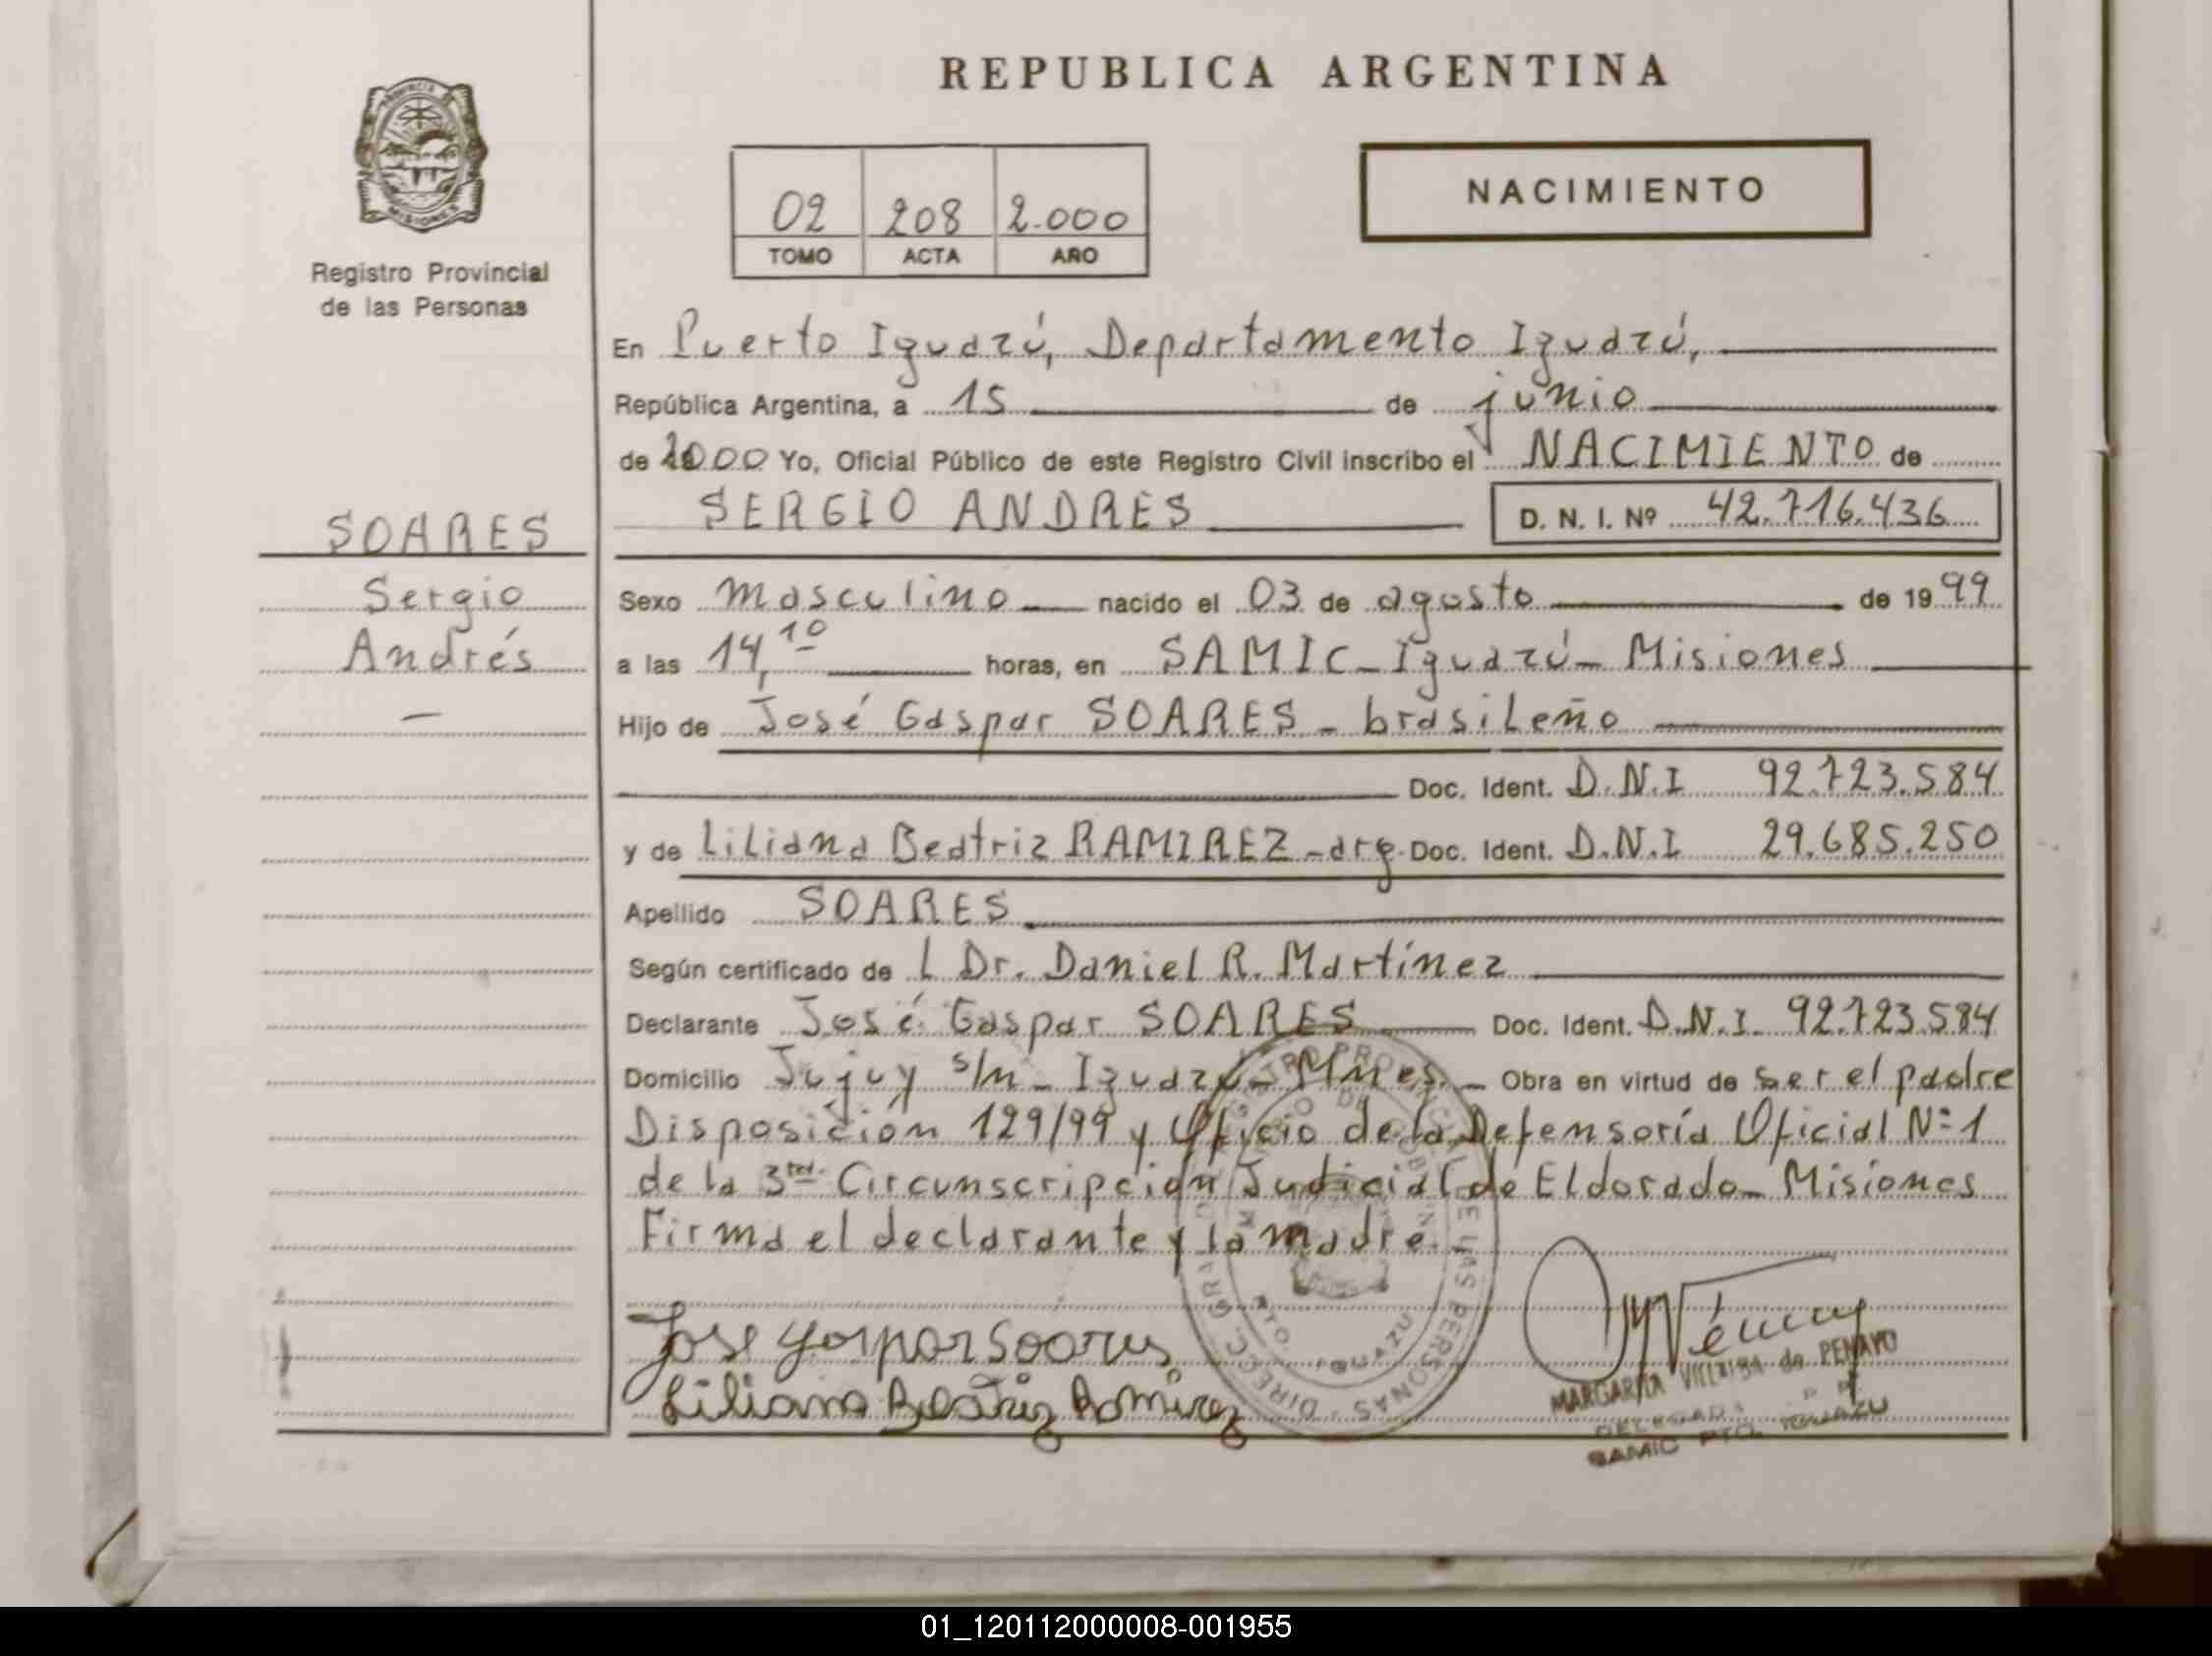 REPUBLICA ARGENTINA
PROVINCIA
MISIONES
Registro Provincial
de las Personas
02 208 2.000
TOMO ACTA AÑO
NACIMIENTO
En Puerto Iguazú, Departamento Iguazú,
República Argentina, a 15 de junio
de 2000 Yo, Oficial Público de este Registro Civil inscribo el NACIMIENTO de
SERGIO ANDRES D. N. I. Nº 42.716.436
SOARES
Sergio
Andrés
Sexo masculino nacido el 03 de agosto de 1999
a las 14,10 horas, en SAMIC - Iguazú - Misiones
Hijo de José Gaspar SOARES - brasileño
Doc. Ident. D.N.I 92.723.584
y de Liliana Beatriz RAMIREZ - arg. Doc. Ident. D.N.I 29.685.250
Apellido SOARES
Según certificado de L Dr. Daniel R. Martínez
Declarante José Gaspar SOARES Doc. Ident. D.N.I. 92.723.584
Domicilio Jujuy s/n - Iguazú - Mnes. - Obra en virtud de ser el padre
Disposición 129/99 y Oficio de la Defensoría Oficial Nº 1
de la 3ra. Circunscripción Judicial de Eldorado - Misiones
Firma el declarante y la madre.
Jose Gaspar Soares
Liliana Beatriz Ramirez
MARGARITA VILLALBA de PENAYO
DELEGADA
SAMIC PTO. IGUAZU
DIRECC. GRAL. DE REGISTRO PROVINCIAL DE LAS PERSONAS
PTO. IGUAZU
01_120112000008-001955